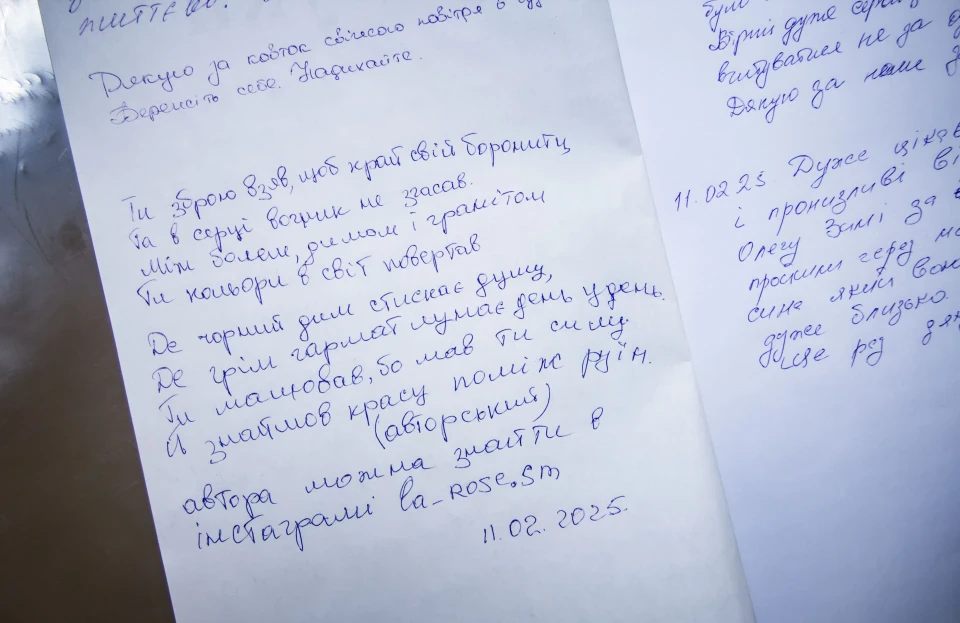 життєво.
Дякую за ковток свіжого повітря в
Бережіть себе. Надихайте.
Ти зброю взяв, щоб край свій боронити,
Та в серці вогник не згасав.
Між болем, димом і гранітом
Ти кольори в світ повертав
Де чорний дим стискає душу,
Де грім гармат лунає день у день.
Ти малював, бо мав ти силу
Й знайшов красу поміж руїн.
(авторський)
автора можна знайти в
інстаграмі la_rose.sm
11.02.2025.
було
Вірші дуже
вчитуватися не да
Дякую за наше
11.02.25. Дуже ціка
і пронизливі
Олегу Зимі за
проскили через
сина який
дуже близько.
це рез